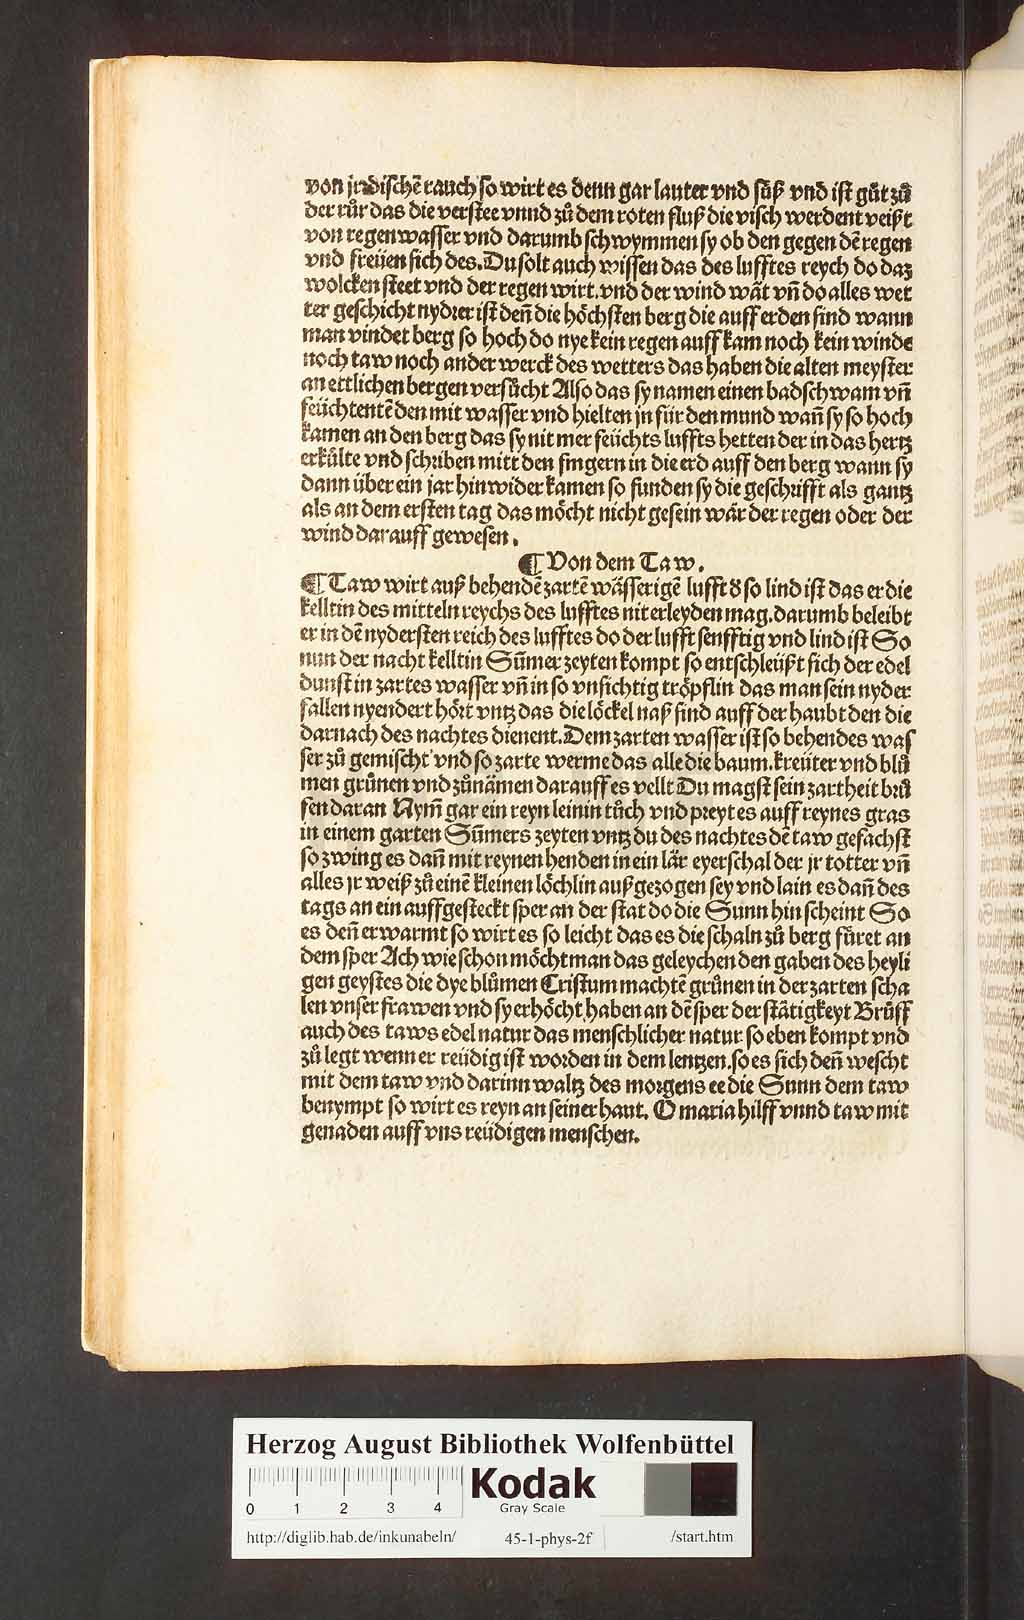 von jrdischē rauch so wirt es denn gar lauter vnd süß vnd ist gůt zů
der růr das die verstee vnnd zů dem roten fluß die visch werdent veißt
von regenwasser vnd darumb schwymmen sy ob den gegen dē regen
vnd freüen sich des. Du solt auch wissen das des lufftes reych do daz
wolcken steet vnd der regen wirt. vnd der wind wät vn̄ do alles wet
ter geschicht nydrer ist den̄ die höchsten berg die auff erden sind wann
man vindet berg so hoch do nye kein regen auff kam noch kein winde
noch taw noch ander werck des wetters das haben die alten meyster
an ettlichen bergen versůcht Also das sy namen einen badschwam vn̄
feüchtentē den mit wasser vnd hielten jn für den mund wan̄ sy so hoch
kamen an den berg das sy nit mer feüchts luffts hetten der in das hertz
erkůlte vnd schriben mitt den fingern in die erd auff den berg wann sy
dann über ein jar hinwider kamen so funden sy die geschrifft als gantz
als an dem ersten tag das möcht nicht gesein wär der regen oder der
wind darauff gewesen.
¶ Von dem Taw.
¶ Taw wirt auß behendē zartē wässerigē lufft d̕ so lind ist das er die
kelltin des mitteln reychs des lufftes nit erleyden mag. darumb beleibt
er in dē nydersten reich des lufftes do der lufft senfftig vnd lind ist So
nun der nacht kelltin Sum̄er zeyten kompt so entschleüßt sich der edel
dunst in zartes wasser vn̄ in so vnsichtig tröpflin das man sein nyder
fallen nyendert hört vntz das die löckel naß sind auff der haubt den die
darnach des nachtes dienent. Dem zarten wasser ist so behendes was
ser zů gemischt vnd so zarte werme das alle die baum. kreüter vnd blů
men grůnen vnd zůnämen darauff es vellt Du magst sein zartheit brů
fen daran Nym̄ gar ein reyn leinin tůch vnd preyt es auff reynes gras
in einem garten Sum̄ers zeyten vntz du des nachtes dē taw gefachst
so zwing es dan̄ mit reynen henden in ein lär eyerschal der jr totter vn̄
alles jr weiß zů einē kleinen löchlin außgezogen sey vnd lain es dan̄ des
tags an ein auffgesteckt sper an der stat do die Sunn hin scheint So
es den̄ erwarmt so wirt es so leicht das es die schaln zů berg fůret an
dem sper Ach wie schon möcht man das geleychen den gaben des heyli
gen geystes die dye blůmen Cristum machtē grůnen in der zarten scha
len vnser frawen vnd sy erhöcht haben an dē sper der stätigkeyt Brůff
auch des taws edel natur das menschlicher natur so eben kompt vnd
zů legt wenn er reüdig ist worden in dem lentzen. so es sich den̄ wescht
mit dem taw vnd darinn waltz des morgens ee die Sunn dem taw
benympt so wirt es reyn an seiner haut. O maria hilff vnnd taw mit
genaden auff vns reüdigen menschen.
Herzog August Bibliothek Wolfenbüttel
0 1 2 3 4
Kodak
Gray Scale
http://diglib.hab.de/inkunabeln/ 45-1-phys-2f /start.htm